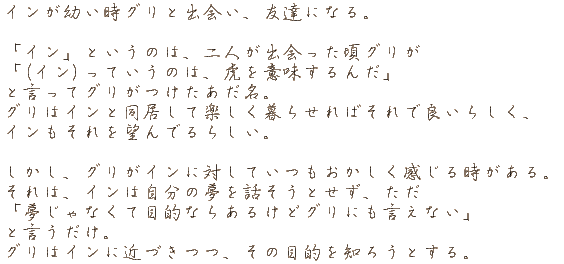 インが幼い時グリと出会い、友達になる。
「イン」というのは、二人が出会った頃グリが
「(イン)っていうのは、虎を意味するんだ」
と言ってグリがつけたあだ名。
グリはインと同居して楽しく暮らせればそれで良いらしく、
インもそれを望んでるらしい。
しかし、グリがインに対していつもおかしく感じる時がある。
それは、インは自分の夢を話そうとせず、ただ
「夢じゃなくて目的ならあるけどグリにも言えない」
と言うだけ。
グリはインに近づきつつ、その目的を知ろうとする。